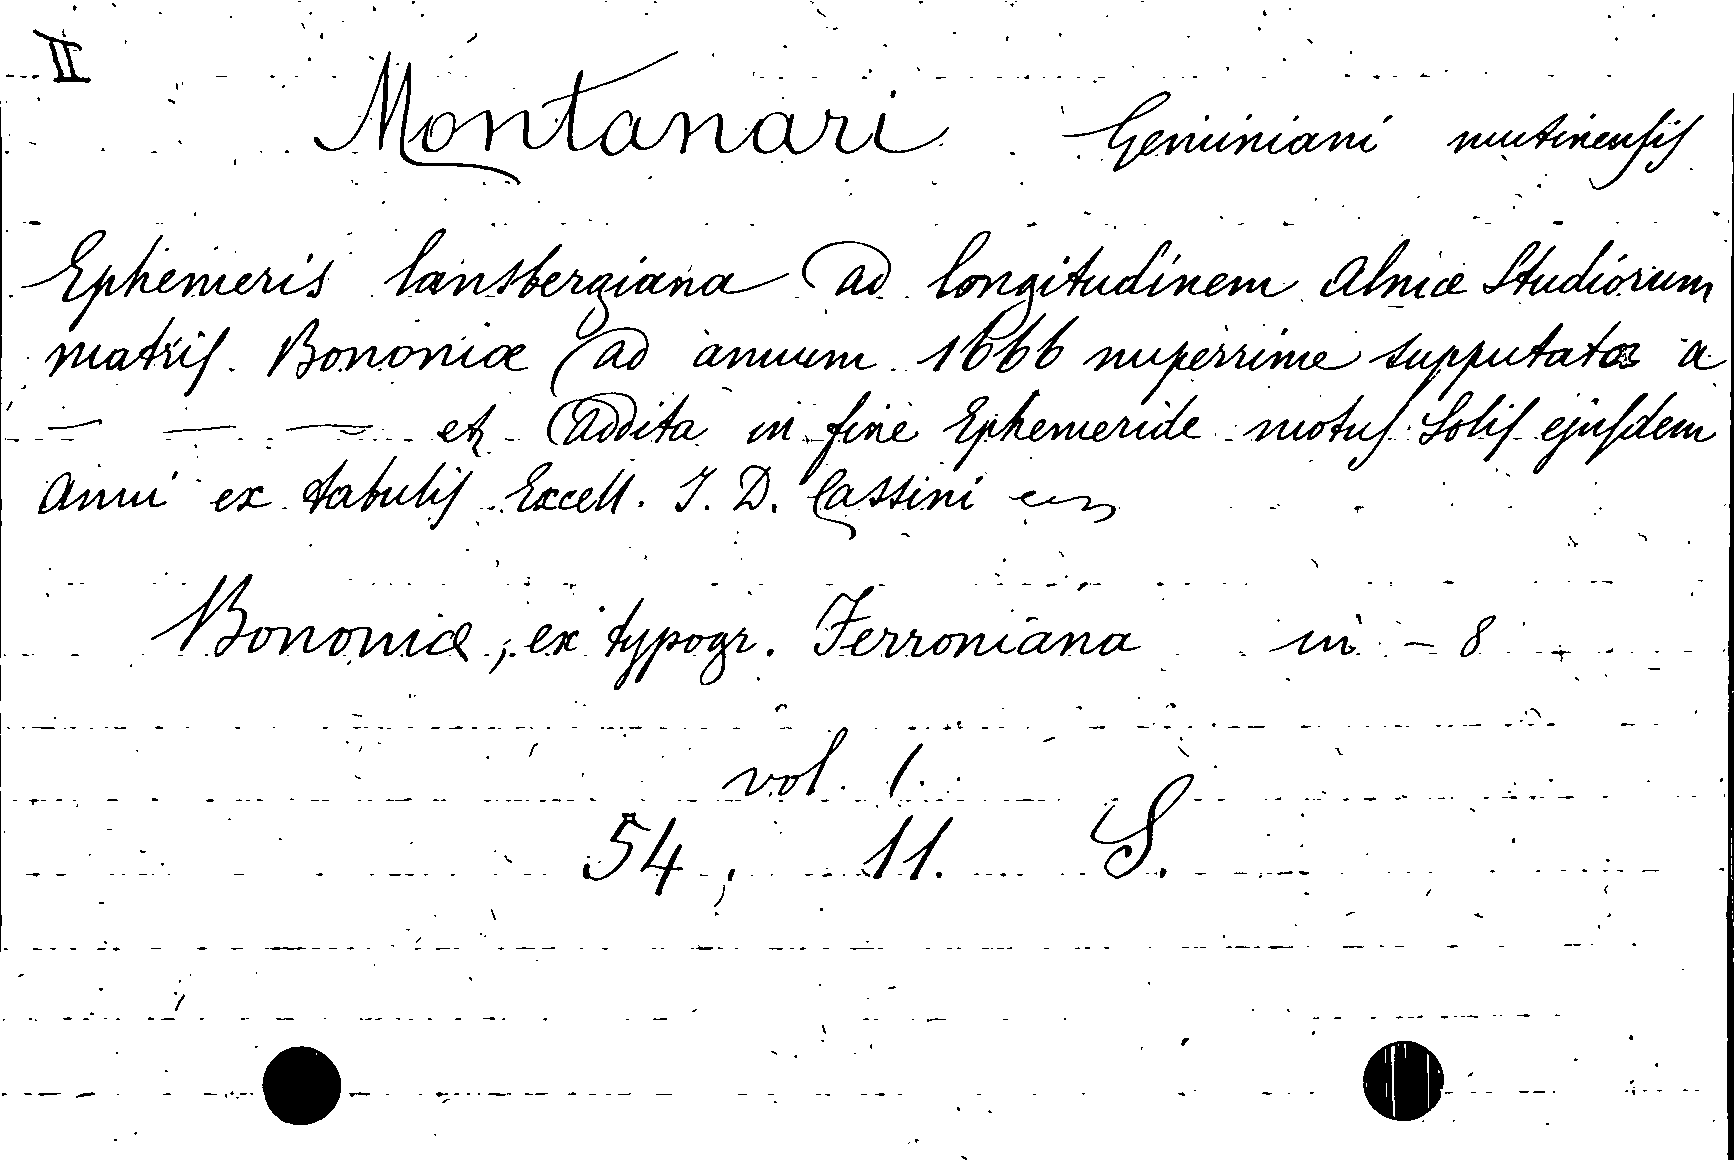 II
Montanari Geminiani mutinensis
Ephemeris lansbergiana ad longitudinem Almæ Studiorum
matris Bononiæ ad annum 1666 nuperrime supputata a
— — — et addita in fine Ephemeride motus Solis ejusdem
anni ex tabulis Excell. J. D. Cassini
Bononiæ, ex typogr. Ferroniana in - 8
vol. 1.
54, 11. S.